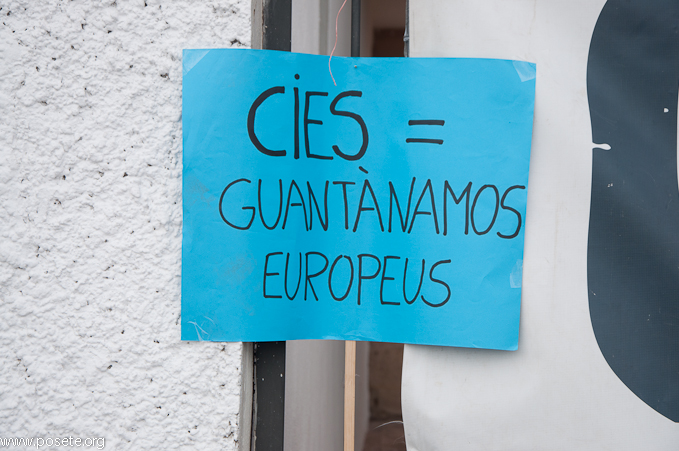 CiES =
GUANTÀNAMOS
EUROPEUS
www.posete.org